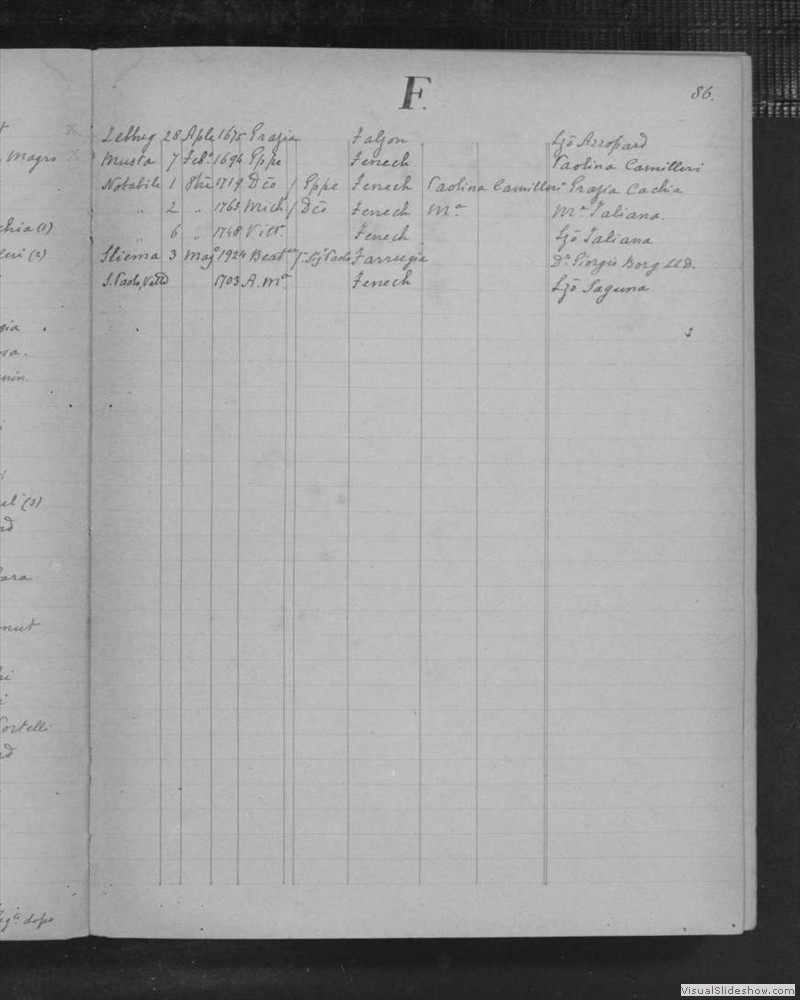 F.
86.
Zebbug 28 Aple 1675 Grazia Falzon Ljō Azzopard
Musta 7 Feb.º 1694 Gppe Fenech Paolina Camilleri
Notabile 1 8bre 1719 Dcō / Gppe Fenech Paolina Camilleri Grazia Cachia
" 2 " 1763 Mich / Dcō Fenech Mª Mª Taliana.
" 6 " 1748 Vitt. Fenech Ljō Taliana
Sliema 3 Magº 1924 Beat Paolo Farrugia Dr. Giorgio Borg LLD.
S. Paolo, Vallª 1703 A. Mª Fenech Ljō Saguna
Magro
chia (1)
leri (2)
(3)
ara
nut
ortelli
dopo
VisualSlideshow.com